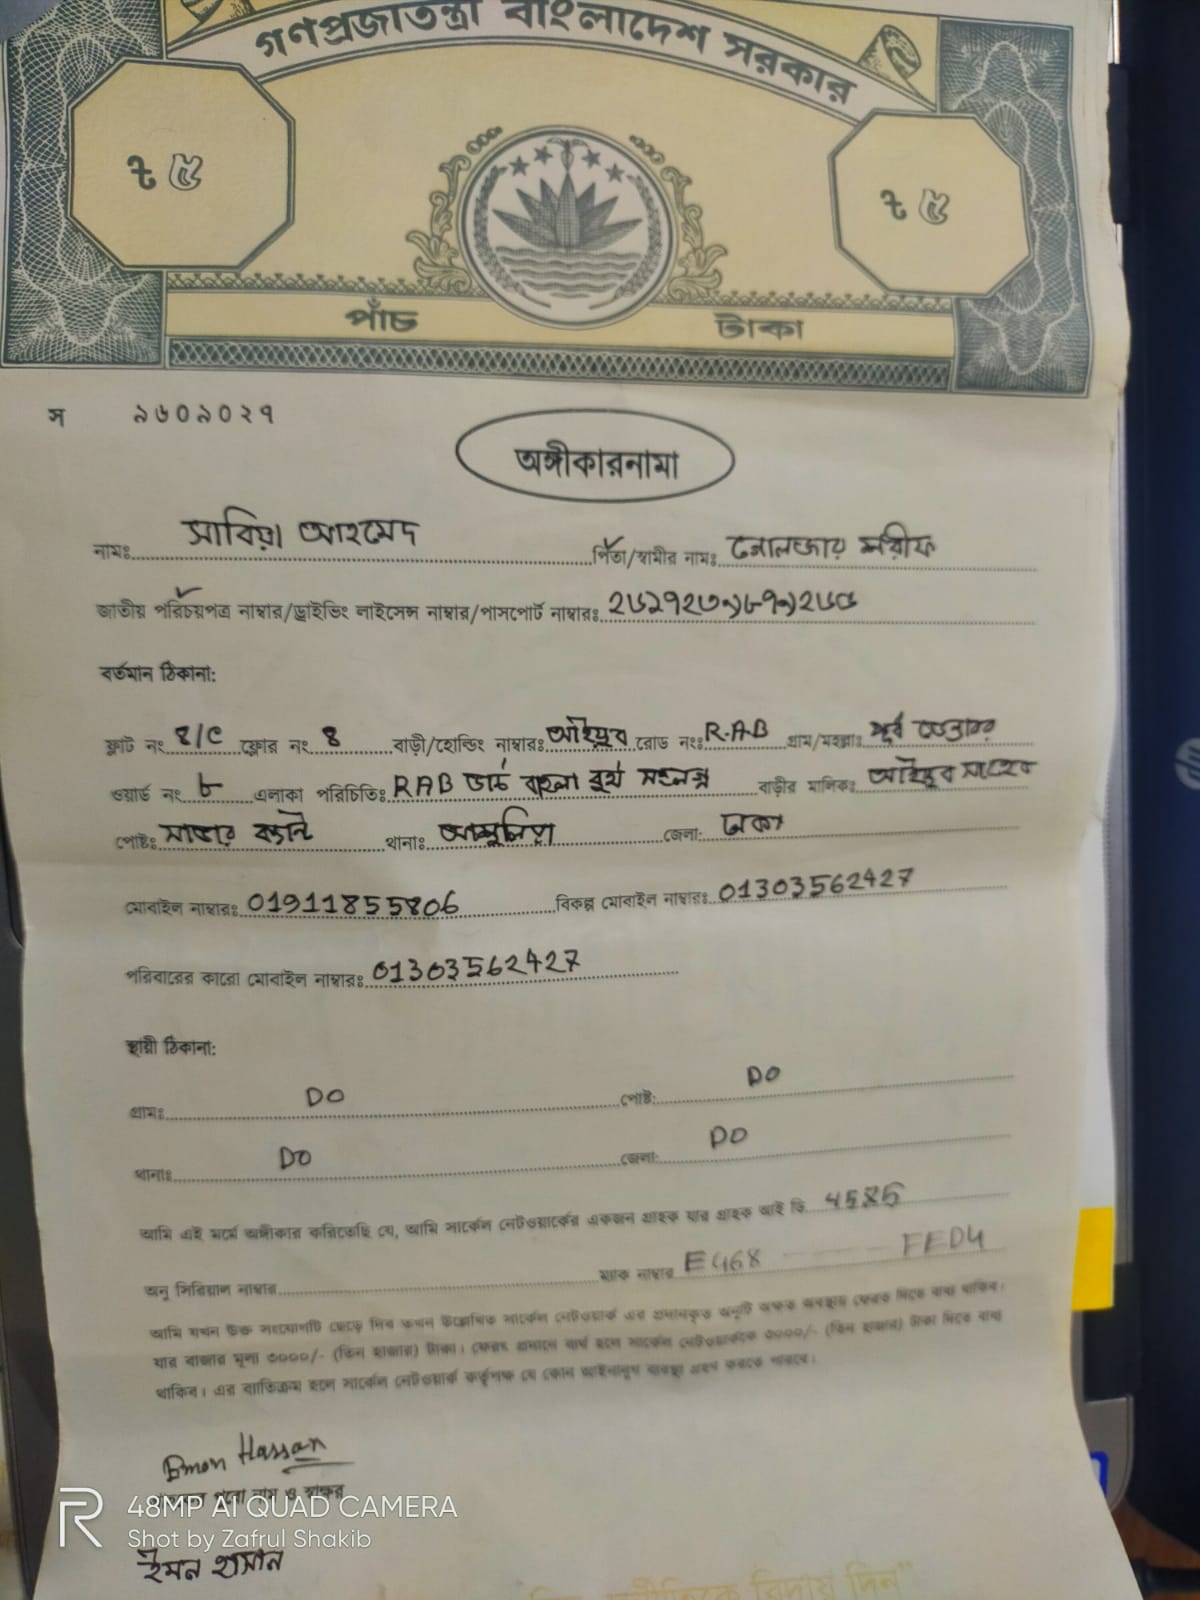 গণপ্রজাতন্ত্রী বাংলাদেশ সরকার
৳ ৫ ৳ ৫
পাঁচ টাকা
স ৯৬০৯০২৭
অঙ্গীকারনামা
নামঃ সাবিয়া আহমেদ পিতা/স্বামীর নামঃ শরীফ
জাতীয় পরিচয়পত্র নাম্বার/ড্রাইভিং লাইসেন্স নাম্বার/পাসপোর্ট নাম্বারঃ
বর্তমান ঠিকানা:
ফ্লাট নং ৪/C ফ্লোর নং ৪ বাড়ী/হোল্ডিং নাম্বারঃ আইয়ুব রোড নংঃ R.A.B গ্রাম/মহল্লাঃ পূর্ব
ওয়ার্ড নং ৮ এলাকা পরিচিতিঃ RAB ডাচ বাংলা বুথ সংলগ্ন বাড়ীর মালিকঃ আইয়ুব সাহেব
পোষ্টঃ সাভার থানাঃ আশুলিয়া জেলা: ঢাকা
মোবাইল নাম্বারঃ 01911855806 বিকল্প মোবাইল নাম্বারঃ 01303562427
পরিবারের কারো মোবাইল নাম্বারঃ 01303562427
স্থায়ী ঠিকানা:
গ্রামঃ DO পোষ্ট: DO
থানাঃ DO জেলা: DO
আমি এই মর্মে অঙ্গীকার করিতেছি যে, আমি সার্কেল নেটওয়ার্কের একজন গ্রাহক যার গ্রাহক আই ডি
অনু সিরিয়াল নাম্বার ম্যাক নাম্বার E468 FED4
আমি যখন উক্ত সংযোগটি ছেড়ে দিব তখন উল্লেখিত সার্কেল নেটওয়ার্ক এর প্রদানকৃত অনুটি অক্ষত অবস্থায় ফেরত দিতে বাধ্য থাকিব।
যার বাজার মূল্য ৩০০০/- (তিন হাজার) টাকা। ফেরৎ প্রদানে ব্যর্থ হলে সার্কেল নেটওয়ার্ককে ৩০০০/- (তিন হাজার) টাকা দিতে বাধ্য
থাকিব। এর ব্যতিক্রম হলে সার্কেল নেটওয়ার্ক কর্তৃপক্ষ যে কোন আইনানুগ ব্যবস্থা গ্রহণ করতে পারবে।
Emon Hassan
নাম ও স্বাক্ষর
48MP AI QUAD CAMERA
Shot by Zafrul Shakib
ইমন হাসান
বিদায় দিন"